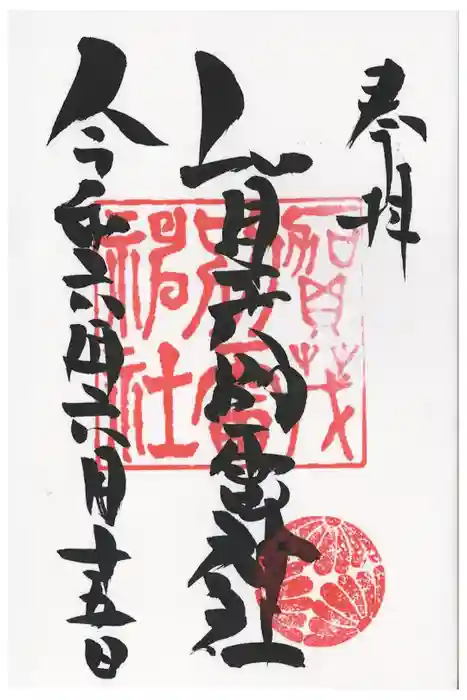 奉拝
賀茂別雷神社
令和六年六月十五日
賀茂
別雷
神社